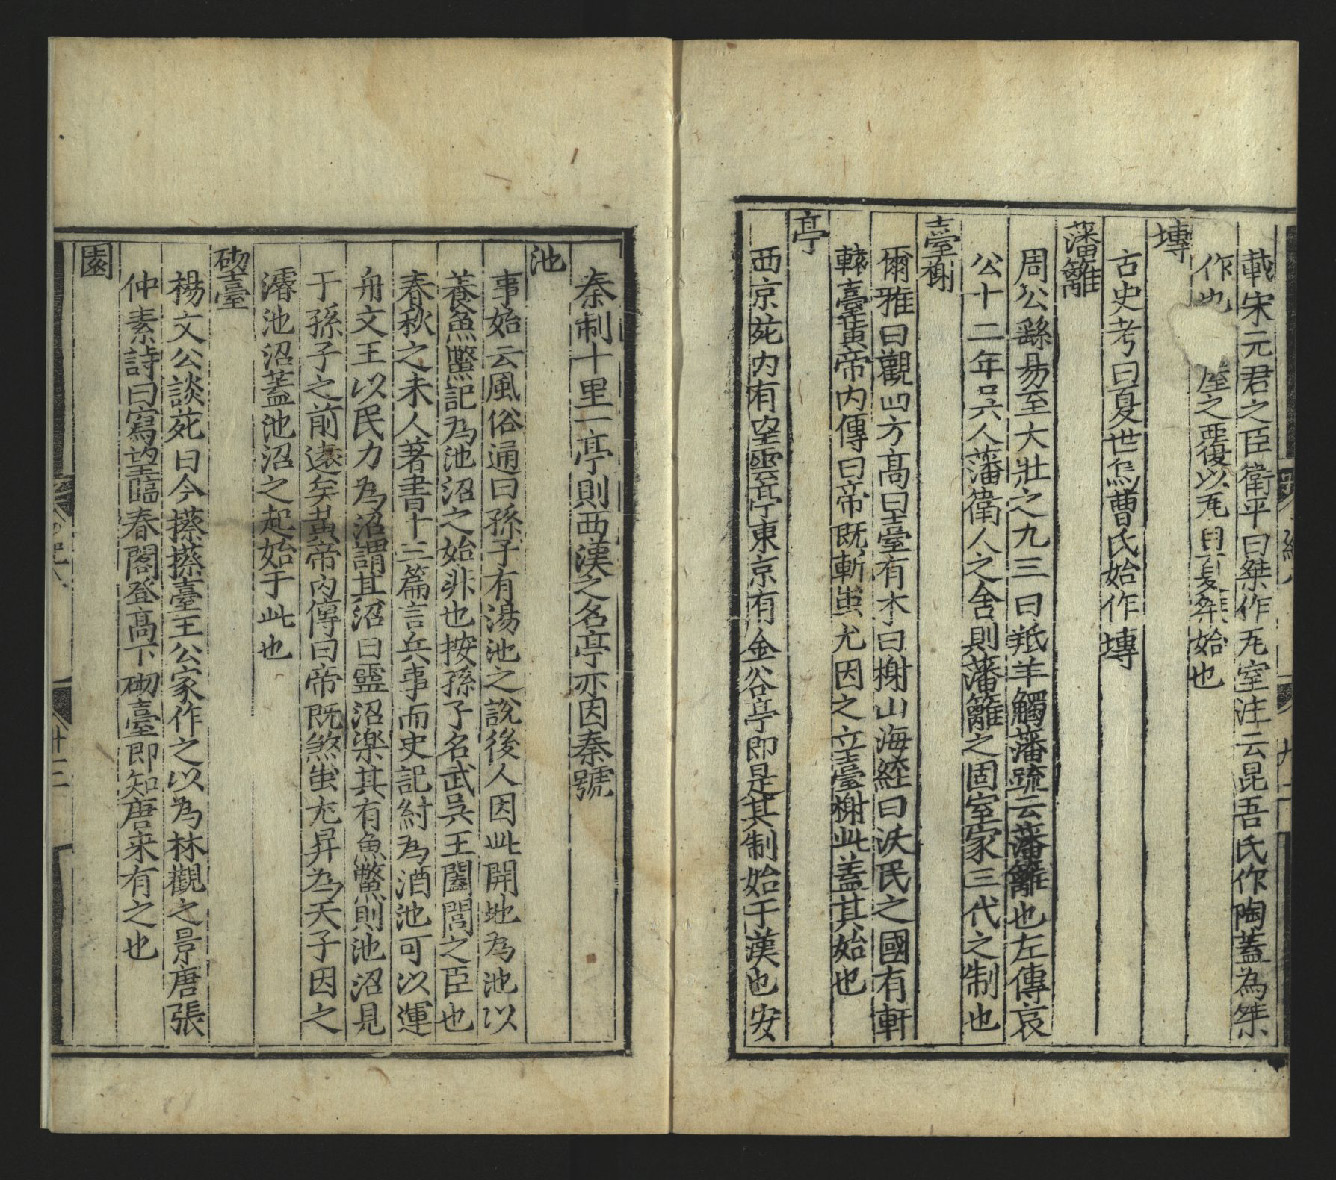 載宋元君之臣衛平曰桀作瓦室注云昆吾氏作陶蓋為桀
作也 屋之覆以瓦自夏桀始也
塼
古史考曰夏世烏曹氏始作塼
藩籬
周公繇易至大壯之九三曰羝羊觸藩䟽云藩籬也左傳哀
公十二年吳人藩衛人之舍則藩籬之固室家三代之制也
臺榭
爾雅曰觀四方高曰臺有木曰榭山海經曰沃民之國有軒
轅臺黃帝內傳曰帝既斬蚩尤因之立臺榭此蓋其始也
亭
西京苑內有望雲亭東京有金谷亭即是其制始于漢也安
秦制十里一亭則西漢之名亭亦因秦號
池
事始云風俗通曰孫子有湯池之說後人因此開地為池以
養魚鱉記為池沼之始非也按孫子名武吳王闔閭之臣也
春秋之末人著書十三篇言兵事而史記紂為酒池可以運
舟文王以民力為沼謂其沼曰靈沼樂其有魚鱉則池沼見
于孫子之前遠矣黃帝內傳曰帝既煞蚩尤昇為天子因之
濬池沼蓋池沼之起始于此也
砌臺
楊文公談苑曰今㩧㩧臺王公家作之以為林觀之景唐張
仲素詩曰寫望臨春閣登高下砌臺即知唐來有之也
園